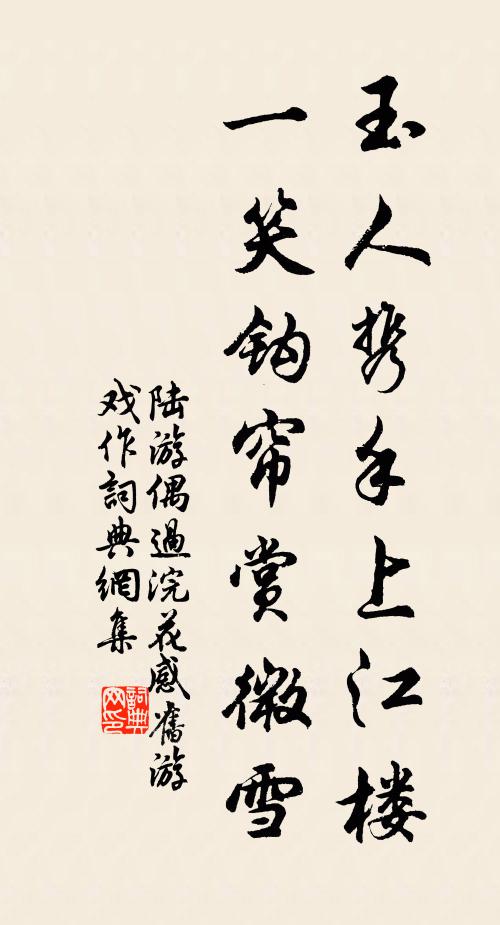 玉人携手上江楼
一笑钩帘赏微雪
陆游偶過浣花感舊游
戏作詞典網集
詞典
网印